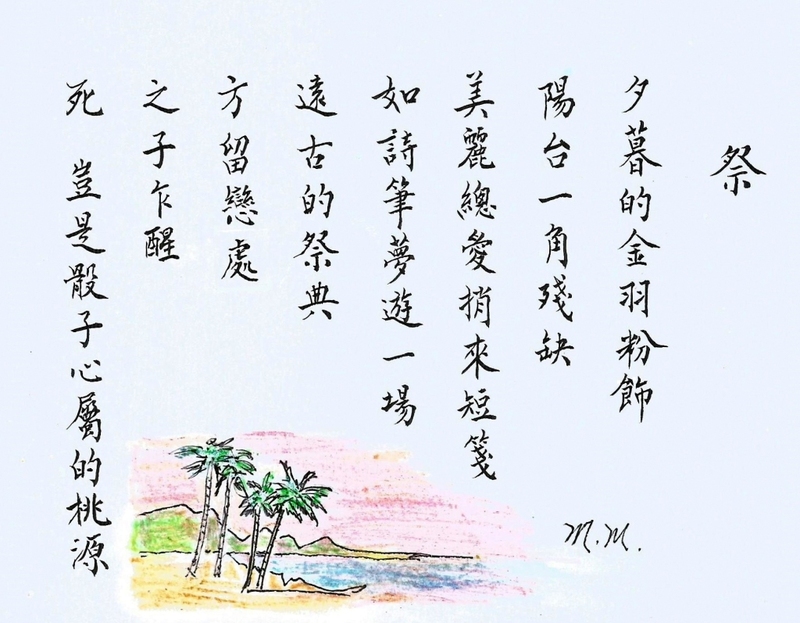 祭
夕暮的金羽粉飾
陽台一角殘缺
美麗總愛捎來短箋
如詩筆夢遊一場
遠古的祭典
方留戀處
之子乍醒
死 豈是骰子心屬的桃源
M.M.